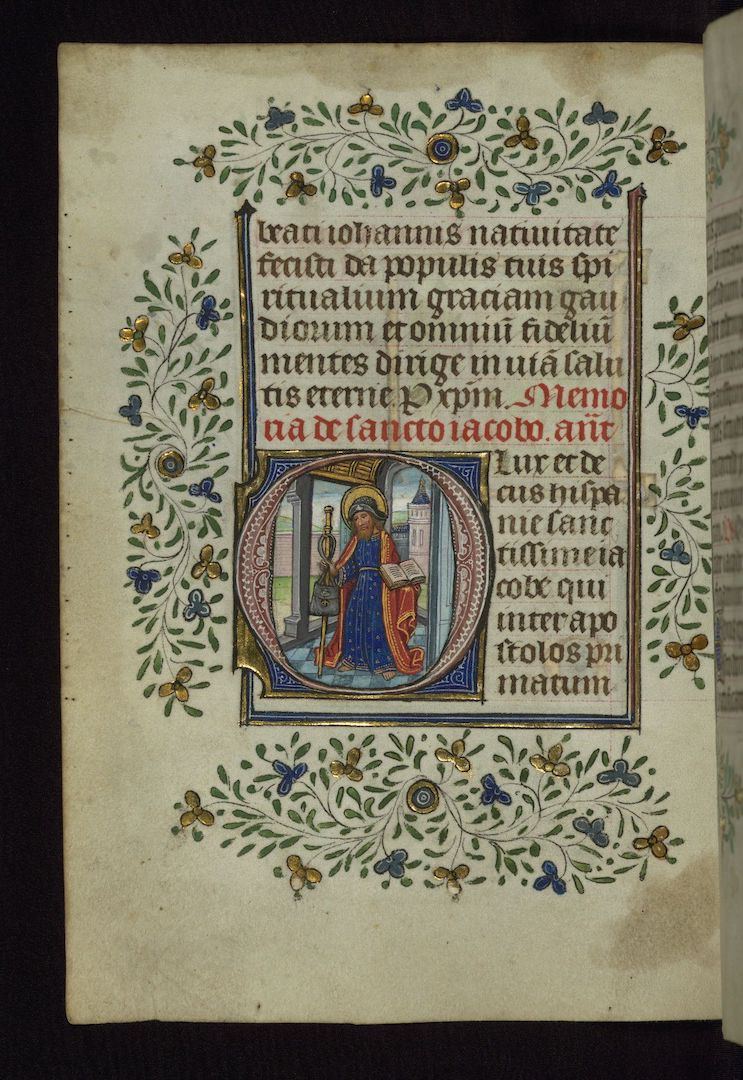 beati iohannis natiuitate
fecisti da populis tuis spi
ritualium graciam gau
diorum et omniū fideliū
mentes dirige in uiā salu
tis eterne P xp̄m. Memo
ria de sancto iacobo. an̄t
O lux et de
cus hispa
nie sanc
tissime ia
cobe qui
inter apo
stolos pri
matum